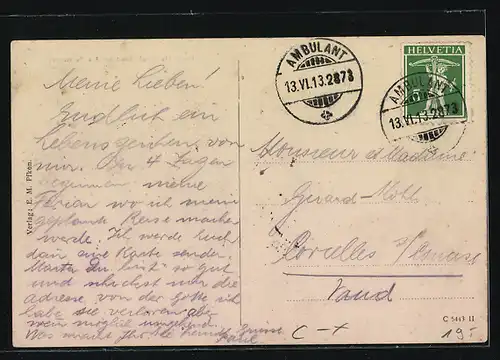 Meine Lieben!
Endlich ein
Lebenszeichen von
mir. In 4 Tagen
beginnen meine
Ferien wo ich mein
geplante Reise machen
werde. Ich werde Euch
dan eine Karte senden.
Martha du bist so gut
und schickst mir die
Adresse von der Gotte ich
habe sie verloren aber
wenn möglich umgehend.
Was macht
Grüsse
Verlag: E. M.
AMBULANT
13.VI.13.2873
HELVETIA
5
AMBULANT
13.VI.13.2873
Monsieur et Madame
Corcelles
Vaud
C 5443 II
C-+
19.-